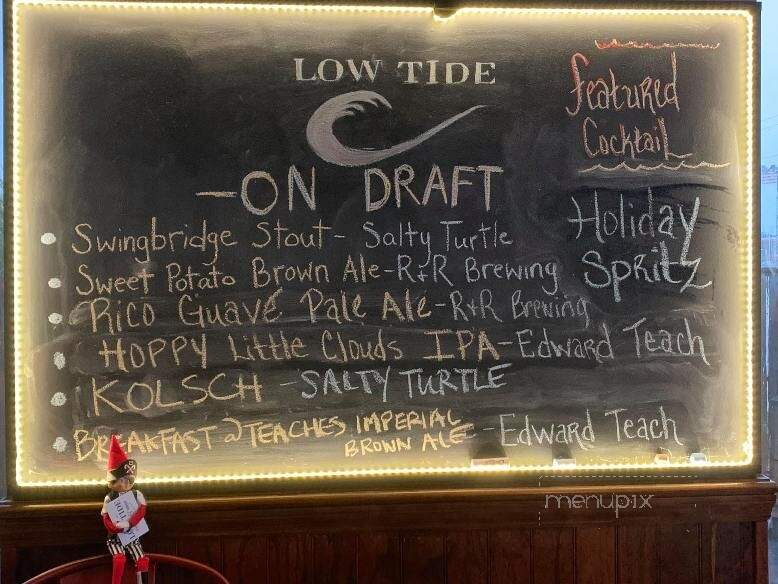 LOW TIDE
-ON DRAFT
• Swingbridge Stout - Salty Turtle
• Sweet Potato Brown Ale - R+R Brewing
• Rico Guavé Pale Ale - R+R Brewing
• HOPPY Little Clouds IPA - Edward Teach
• KOLSCH - SALTY TURTLE
• BREAKFAST @ TEACHES IMPERIAL
BROWN ALE - Edward Teach
Featured
Cocktail
Holiday
Spritz
menupix